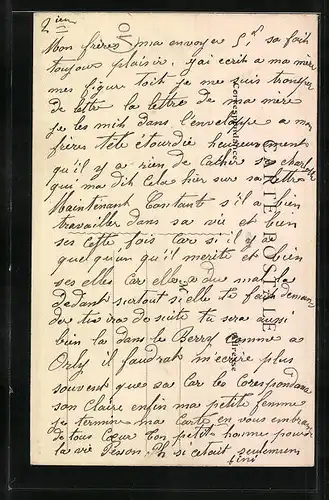 2 ieme
Mon frères ma envoyer 5 f sa fait
toujour plaisir. j'ai ecrit a ma mère
mes figure toit je me suis tromper
de lettre la lettre de ma mère
je les mit dans l'enveloppe a mon
frères tête étourdie heureusement
qu'il y a rien de cacher
qui ma dit cela hier sur sa lettre
Maintenant Constant s'il a bien
travailler dans sa vie et bien
ses cette fois car si il y a
quelqu'un qu'il merite et bien
ses elles car elle a du mal la
dedant surtout si elle te fait deman-
der tu ira de suite tu sera aussi
bien la dans le Berry comme a
Orly il faudrat m'ecrire plus
souvent que sa car la Corespondance
son Claire enfin ma petite femme
je termine ma carte en vous embrassant
de tous cœur ton petit homme pour
la vie Pesson. h si cetait seulement
fini
CARTE POSTALE
Correspondance
Adresse